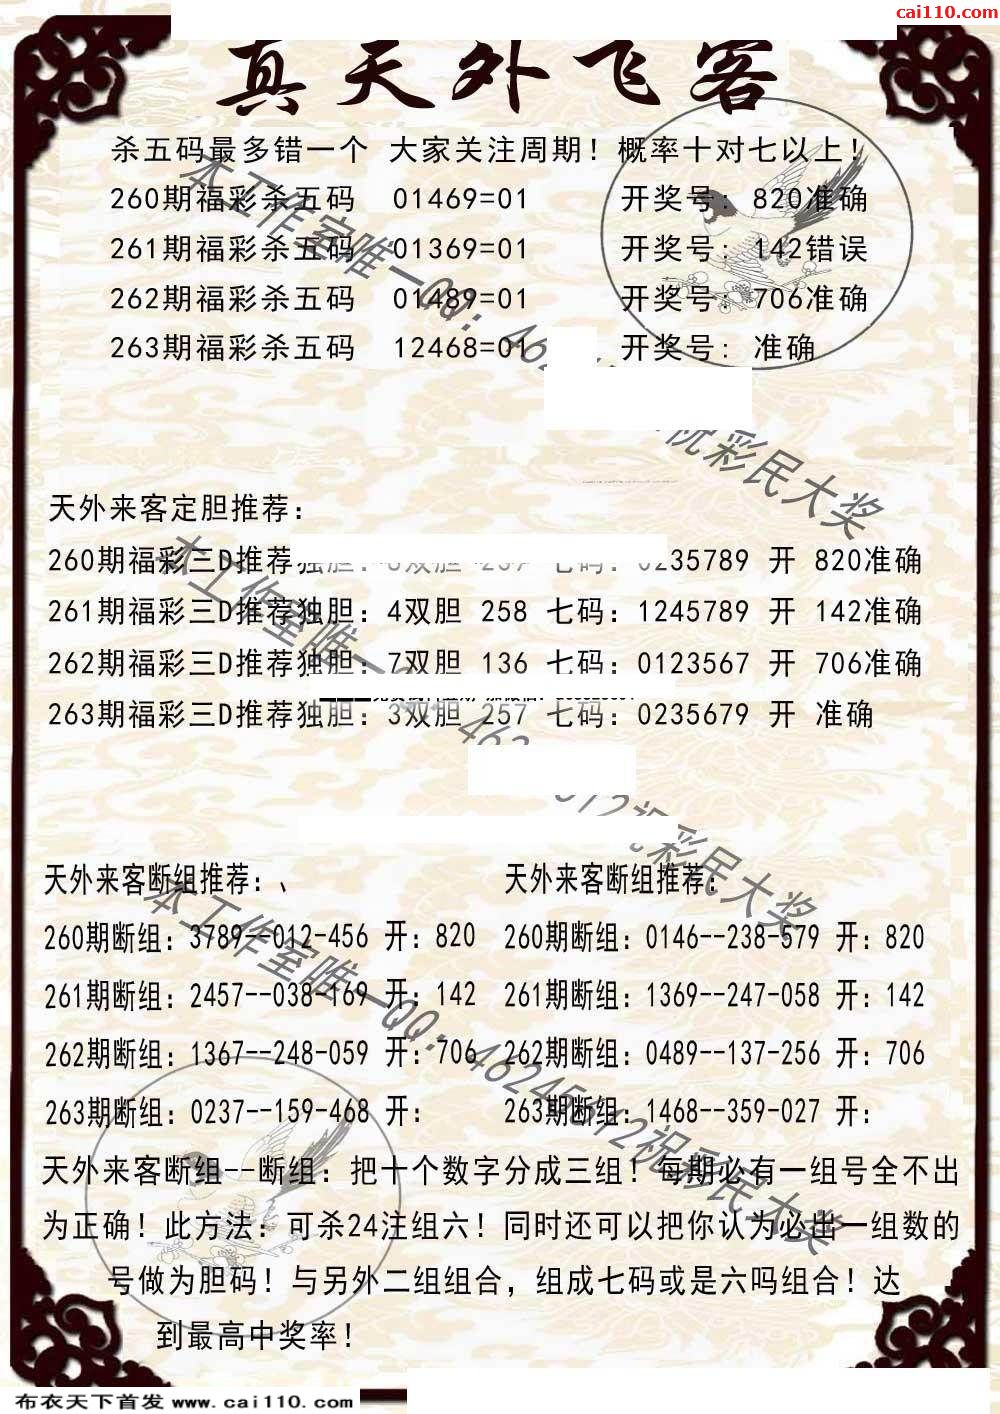 cai110.com
真天外飞客
杀五码最多错一个 大家关注周期！概率十对七以上！
260期福彩杀五码 01469=01 开奖号: 820准确
261期福彩杀五码 01369=01 开奖号: 142错误
262期福彩杀五码 01489=01 开奖号: 706准确
263期福彩杀五码 12468=01 开奖号: 准确
天外来客定胆推荐:
260期福彩三D推荐独胆: 双胆 七码: 0235789 开 820准确
261期福彩三D推荐独胆: 4双胆 258 七码: 1245789 开 142准确
262期福彩三D推荐独胆: 7双胆 136 七码: 0123567 开 706准确
263期福彩三D推荐独胆: 3双胆 257 七码: 0235679 开 准确
天外来客断组推荐:、 天外来客断组推荐:
260期断组: 3789--012-456 开: 820 260期断组: 0146--238-579 开: 820
261期断组: 2457--038-169 开: 142 261期断组: 1369--247-058 开: 142
262期断组: 1367--248-059 开: 706 262期断组: 0489--137-256 开: 706
263期断组: 0237--159-468 开: 263期断组: 1468--359-027 开:
天外来客断组--断组: 把十个数字分成三组！每期必有一组号全不出
为正确！此方法: 可杀24注组六！同时还可以把你认为必出一组数的
号做为胆码！与另外二组组合，组成七码或是六吗组合！达
到最高中奖率！
本工作室唯一QQ: 46 祝彩民大奖
本工作室唯一 462 612祝彩民大奖
本工作室唯一QQ: 46245612祝彩民大奖
布衣天下首发 www.cai110.com